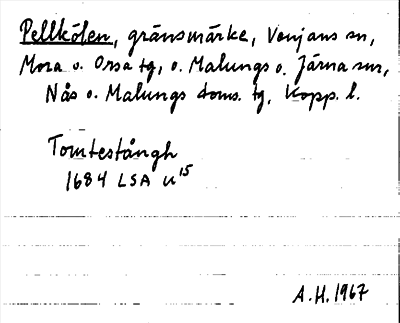 Pellkölen, gränsmärke, Venjans sn,
Mora o. Orsa tg, o. Malungs o. Järna snr,
Nås o. Malungs doms. tg, Kopp. l.
Tomtestångh
1684 LSA u15
A.H. 1967